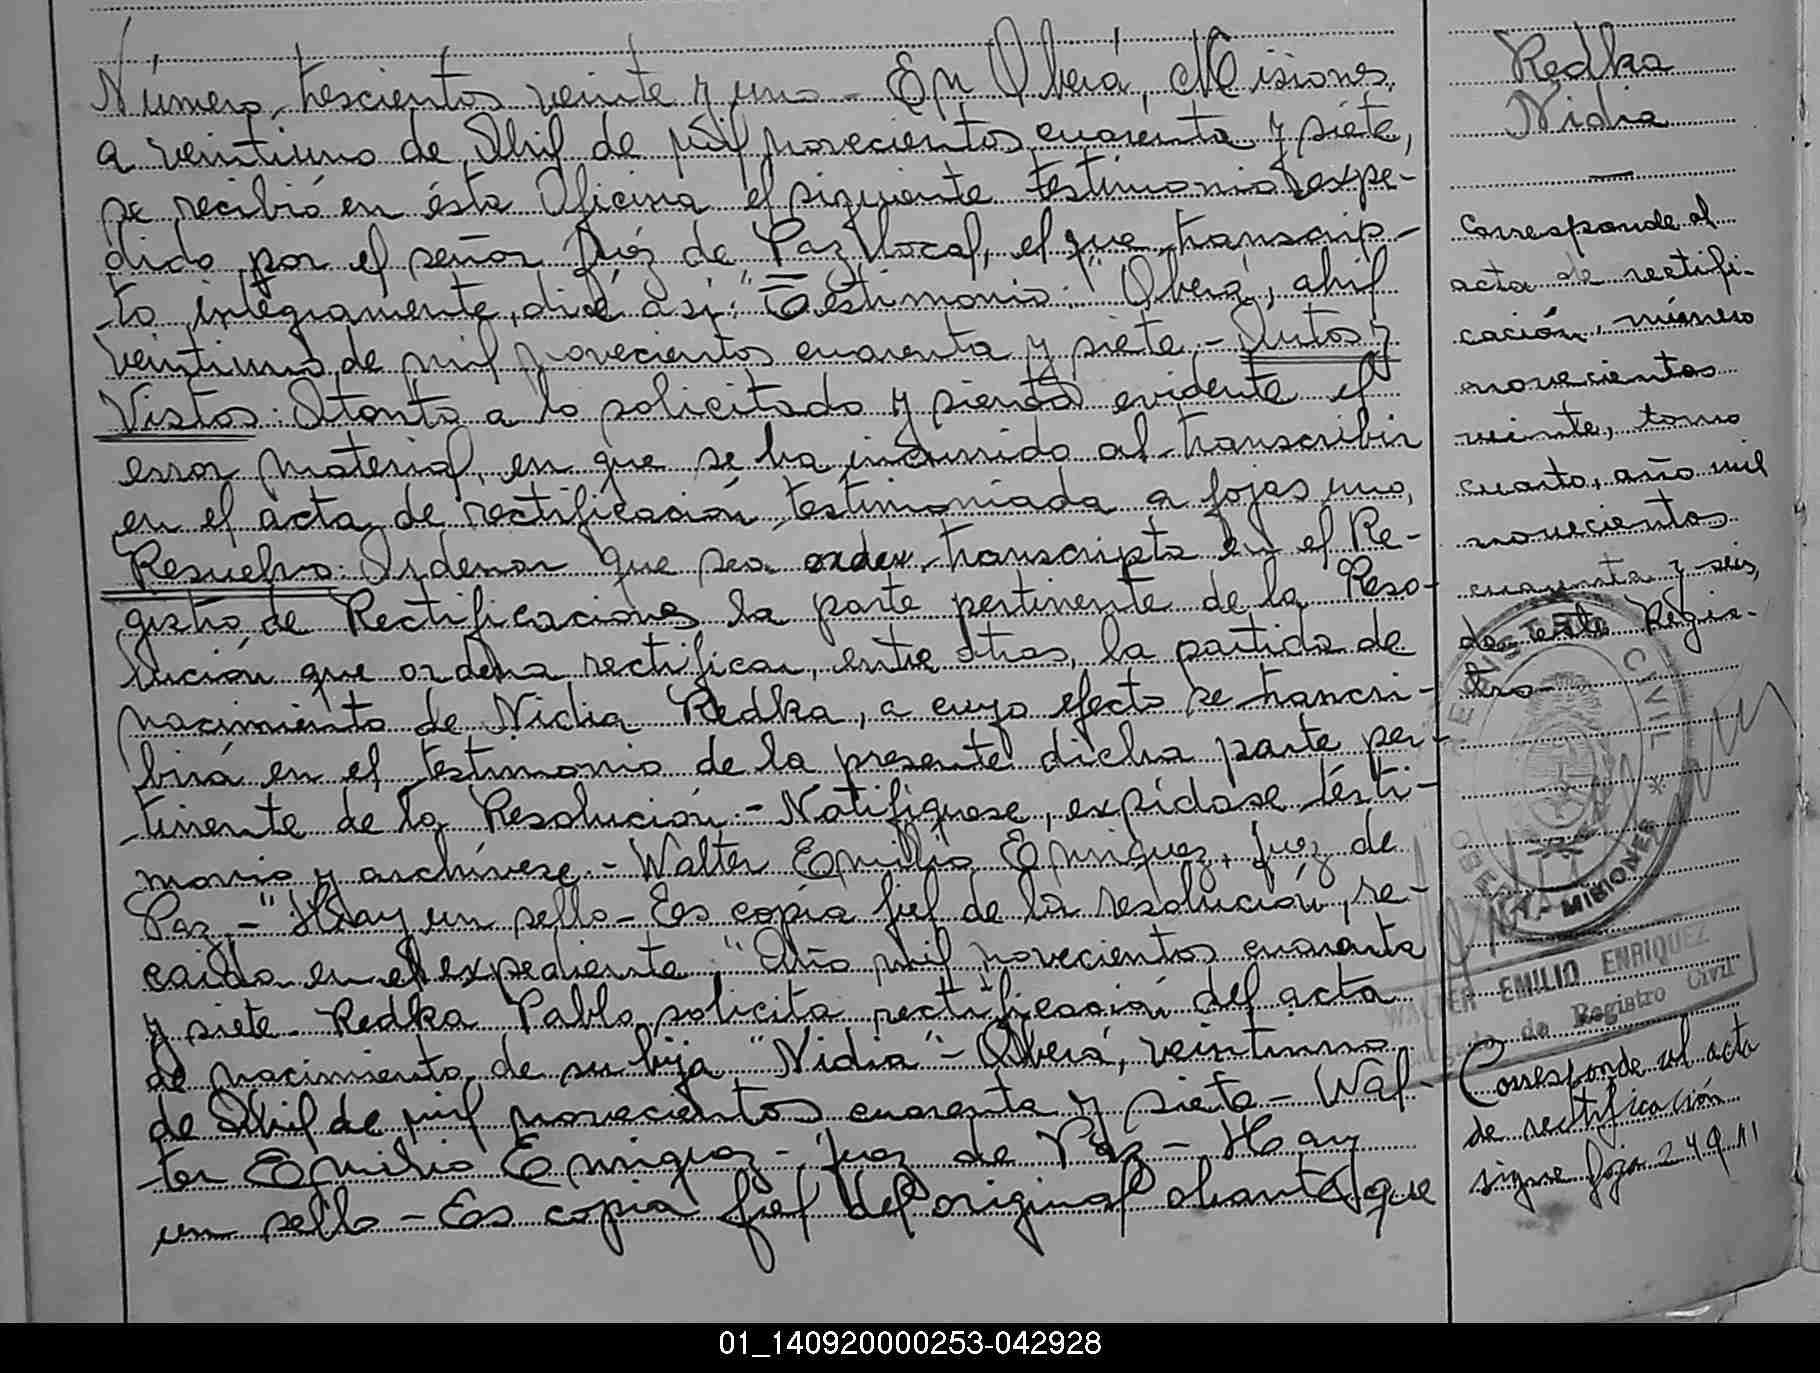 Número trescientos veinte y uno - En Oberá, Misiones,
a veintiuno de Abril de mil novecientos cuarenta y siete,
se recibió en ésta Oficina el siguiente testimonio expe-
dido por el señor Juéz de Paz local, el que transcrip-
to íntegramente, dice así: "Testimonio: "Oberá, abril
veintiuno de mil novecientos cuarenta y siete.- Autos y
Vistos: Atento a lo solicitado y siendo evidente el
error material, en que se ha incurrido al transcribir
en el acta de rectificación testimoniada a fojas uno,
Resuelvo: Ordenar que sea transcripta en el Re-
gistro de Rectificaciones la parte pertinente de la Reso-
lución que ordena rectificar, entre otras, la partida de
nacimiento de Nidia Redka, a cuyo efecto se trancri-
birá en el testimonio de la presente dicha parte per-
tinente de la Resolución.- Notifíquese, expídase testi-
monio y archívese.- Walter Emilio Enriquez, Juez de
Paz.-" Hay un sello - Es copia fiel de la resolución, re-
caída en el expediente: "Año mil novecientos cuarenta
y siete - Redka Pablo solicita rectificación del acta
de nacimiento de su hija "Nidia" - Oberá, veintiuno
de Abril de mil novecientos cuarenta y siete - Wal-
ter Emilio Enriquez - Juez de Paz - Hay
un sello - Es copia fiel del original obrante que
Redka
Nidia
Corresponde al
acta de rectifi-
cación, número
novecientos
veinte, tomo
cuarto, año mil
novecientos
cuarenta y seis,
de este Regis-
tro-
REGISTRO CIVIL *
MISIONES
WALTER EMILIO ENRIQUEZ
de Registro Civil
Corresponde al acta
de rectificación
sigue foja 249
01_140920000253-042928